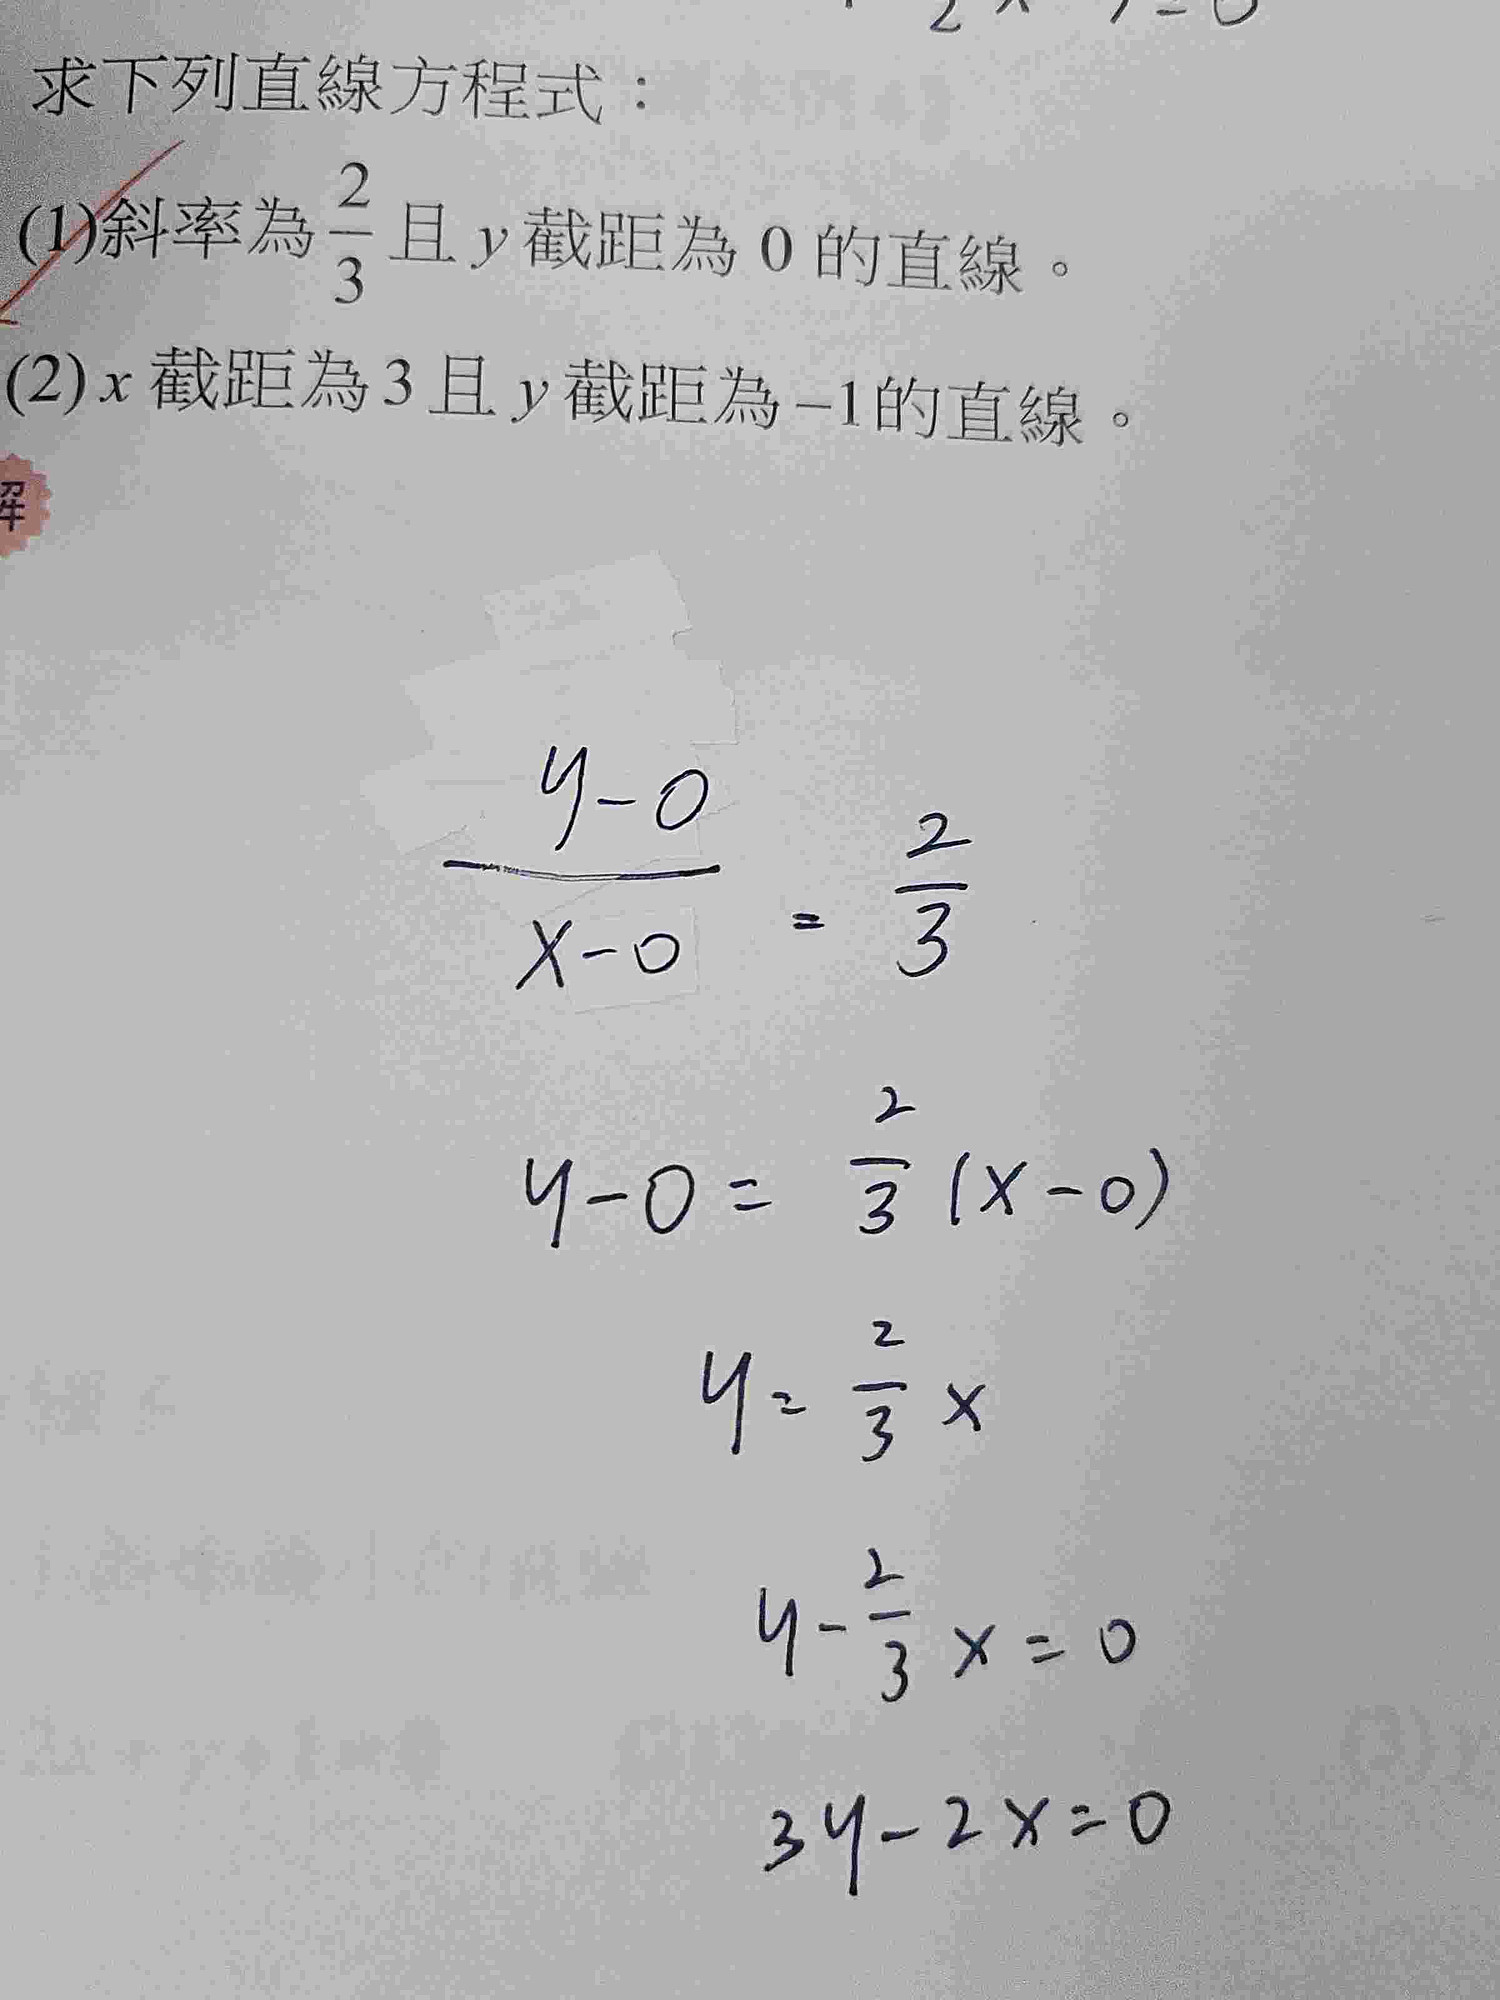 求下列直線方程式：
(1)斜率為 2/3 且 y 截距為 0 的直線。
(2) x 截距為 3 且 y 截距為 –1 的直線。
解
y-0 / x-0 = 2/3
y-0 = 2/3 (x-0)
y = 2/3 x
y - 2/3 x = 0
3y - 2x = 0